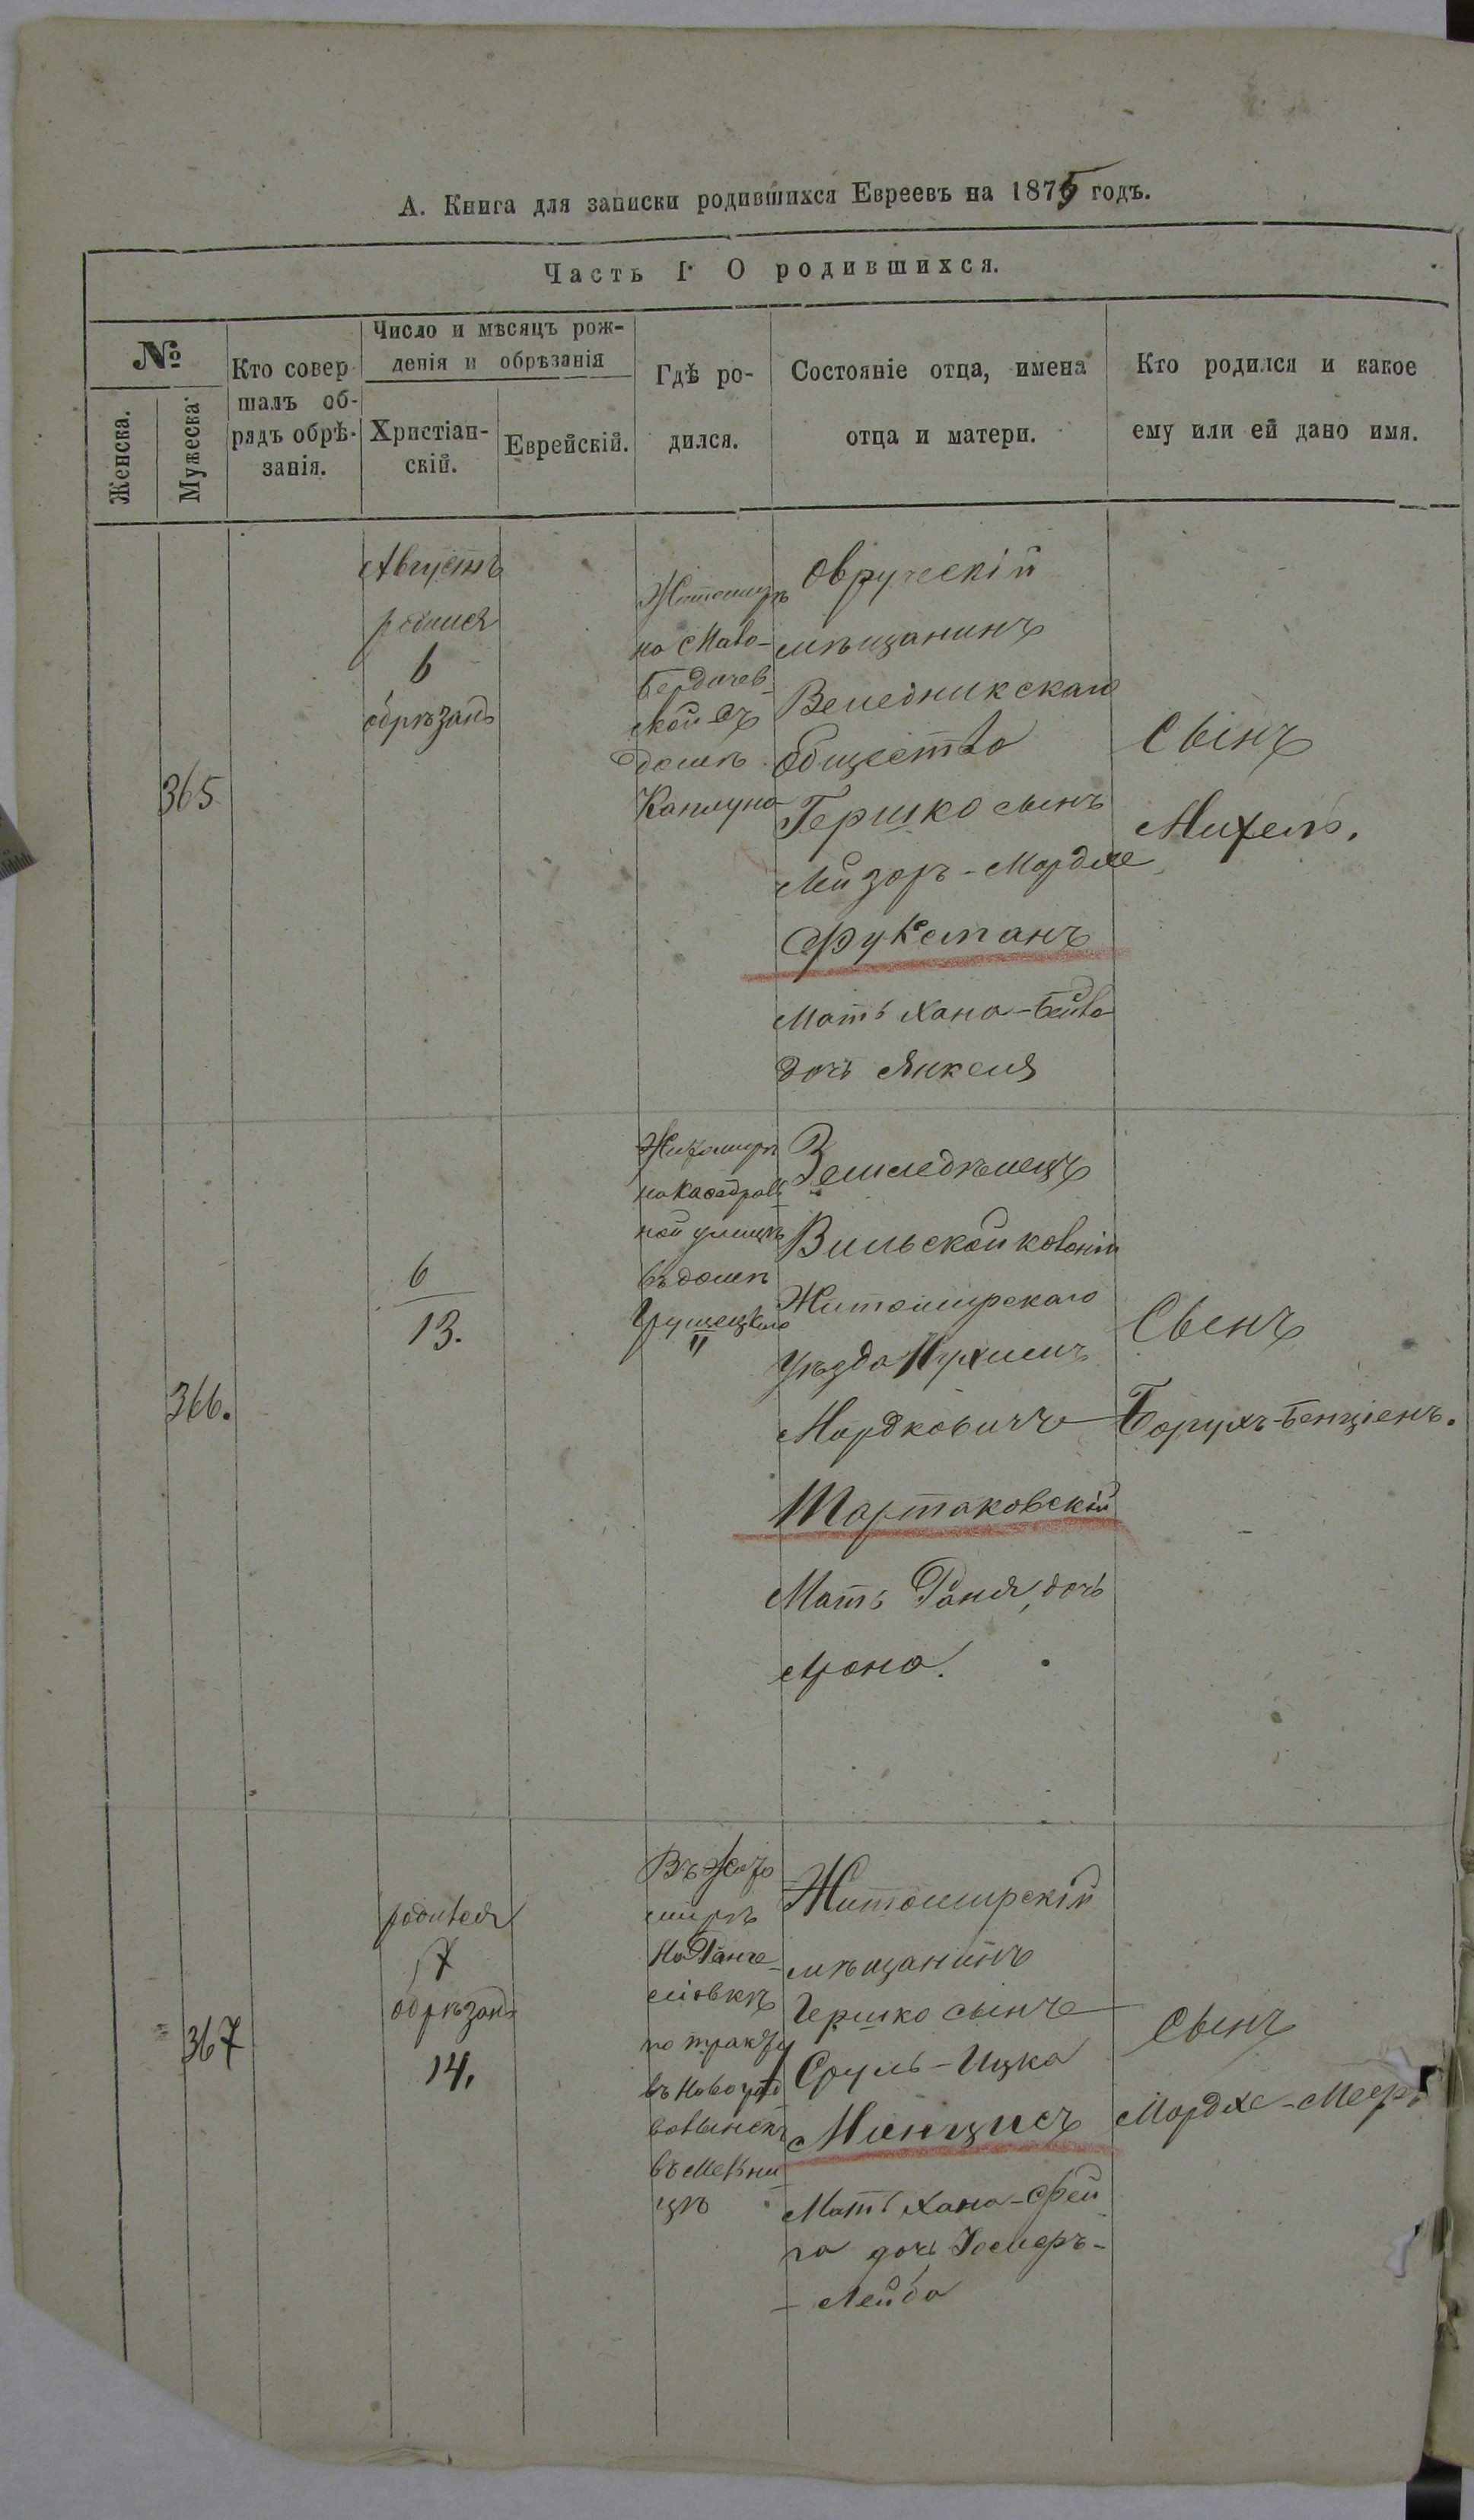 А. Книга для записки родившихся Евреевъ на 1875 годъ.
Часть I. О родившихся.
№
Женска.
Мужеска
Кто совер
шалъ об-
рядъ обрѣ-
занія.
Число и мѣсяцъ рож-
денія и обрѣзанія
Христіан-
скій.
Еврейскій.
Гдѣ ро-
дился.
Состояніе отца, имена
отца и матери.
Кто родился и какое
ему или ей дано имя.
365
Августъ
родился
6
обрѣзанъ
Житомирѣ
на Мало-
Бердичев-
ской въ
домѣ
Каплуна
Овручскій
мѣщанинъ
Веледникскаго
общества
Гершко сынъ
Лейзоръ-Мордхе
Фуксманъ
Мать Хана-Бейла
дочь Янкеля
Сынъ
Михель.
366.
6
13.
Житомирѣ
на Кафедраль
ной улицѣ
въ домѣ
Земледѣлецъ
Вильской колоніи
Житомирскаго
Уѣзда Нухимъ
Мордковичъ
Тартаковскій
Мать Раня, дочь
Арона.
Сынъ
Борухъ-Бенціенъ.
367
родился
7
обрѣзанъ
14.
Въ Жито
мирѣ
по тракту
въ Новоград
волынскъ
Житомирскій
мѣщанинъ
Гершко сынъ
Сруль-Ицка
Минцисъ
Мать Хана-Фей
га дочь Іосперъ-
-Лейба
Сынъ
Мордхе-Меер